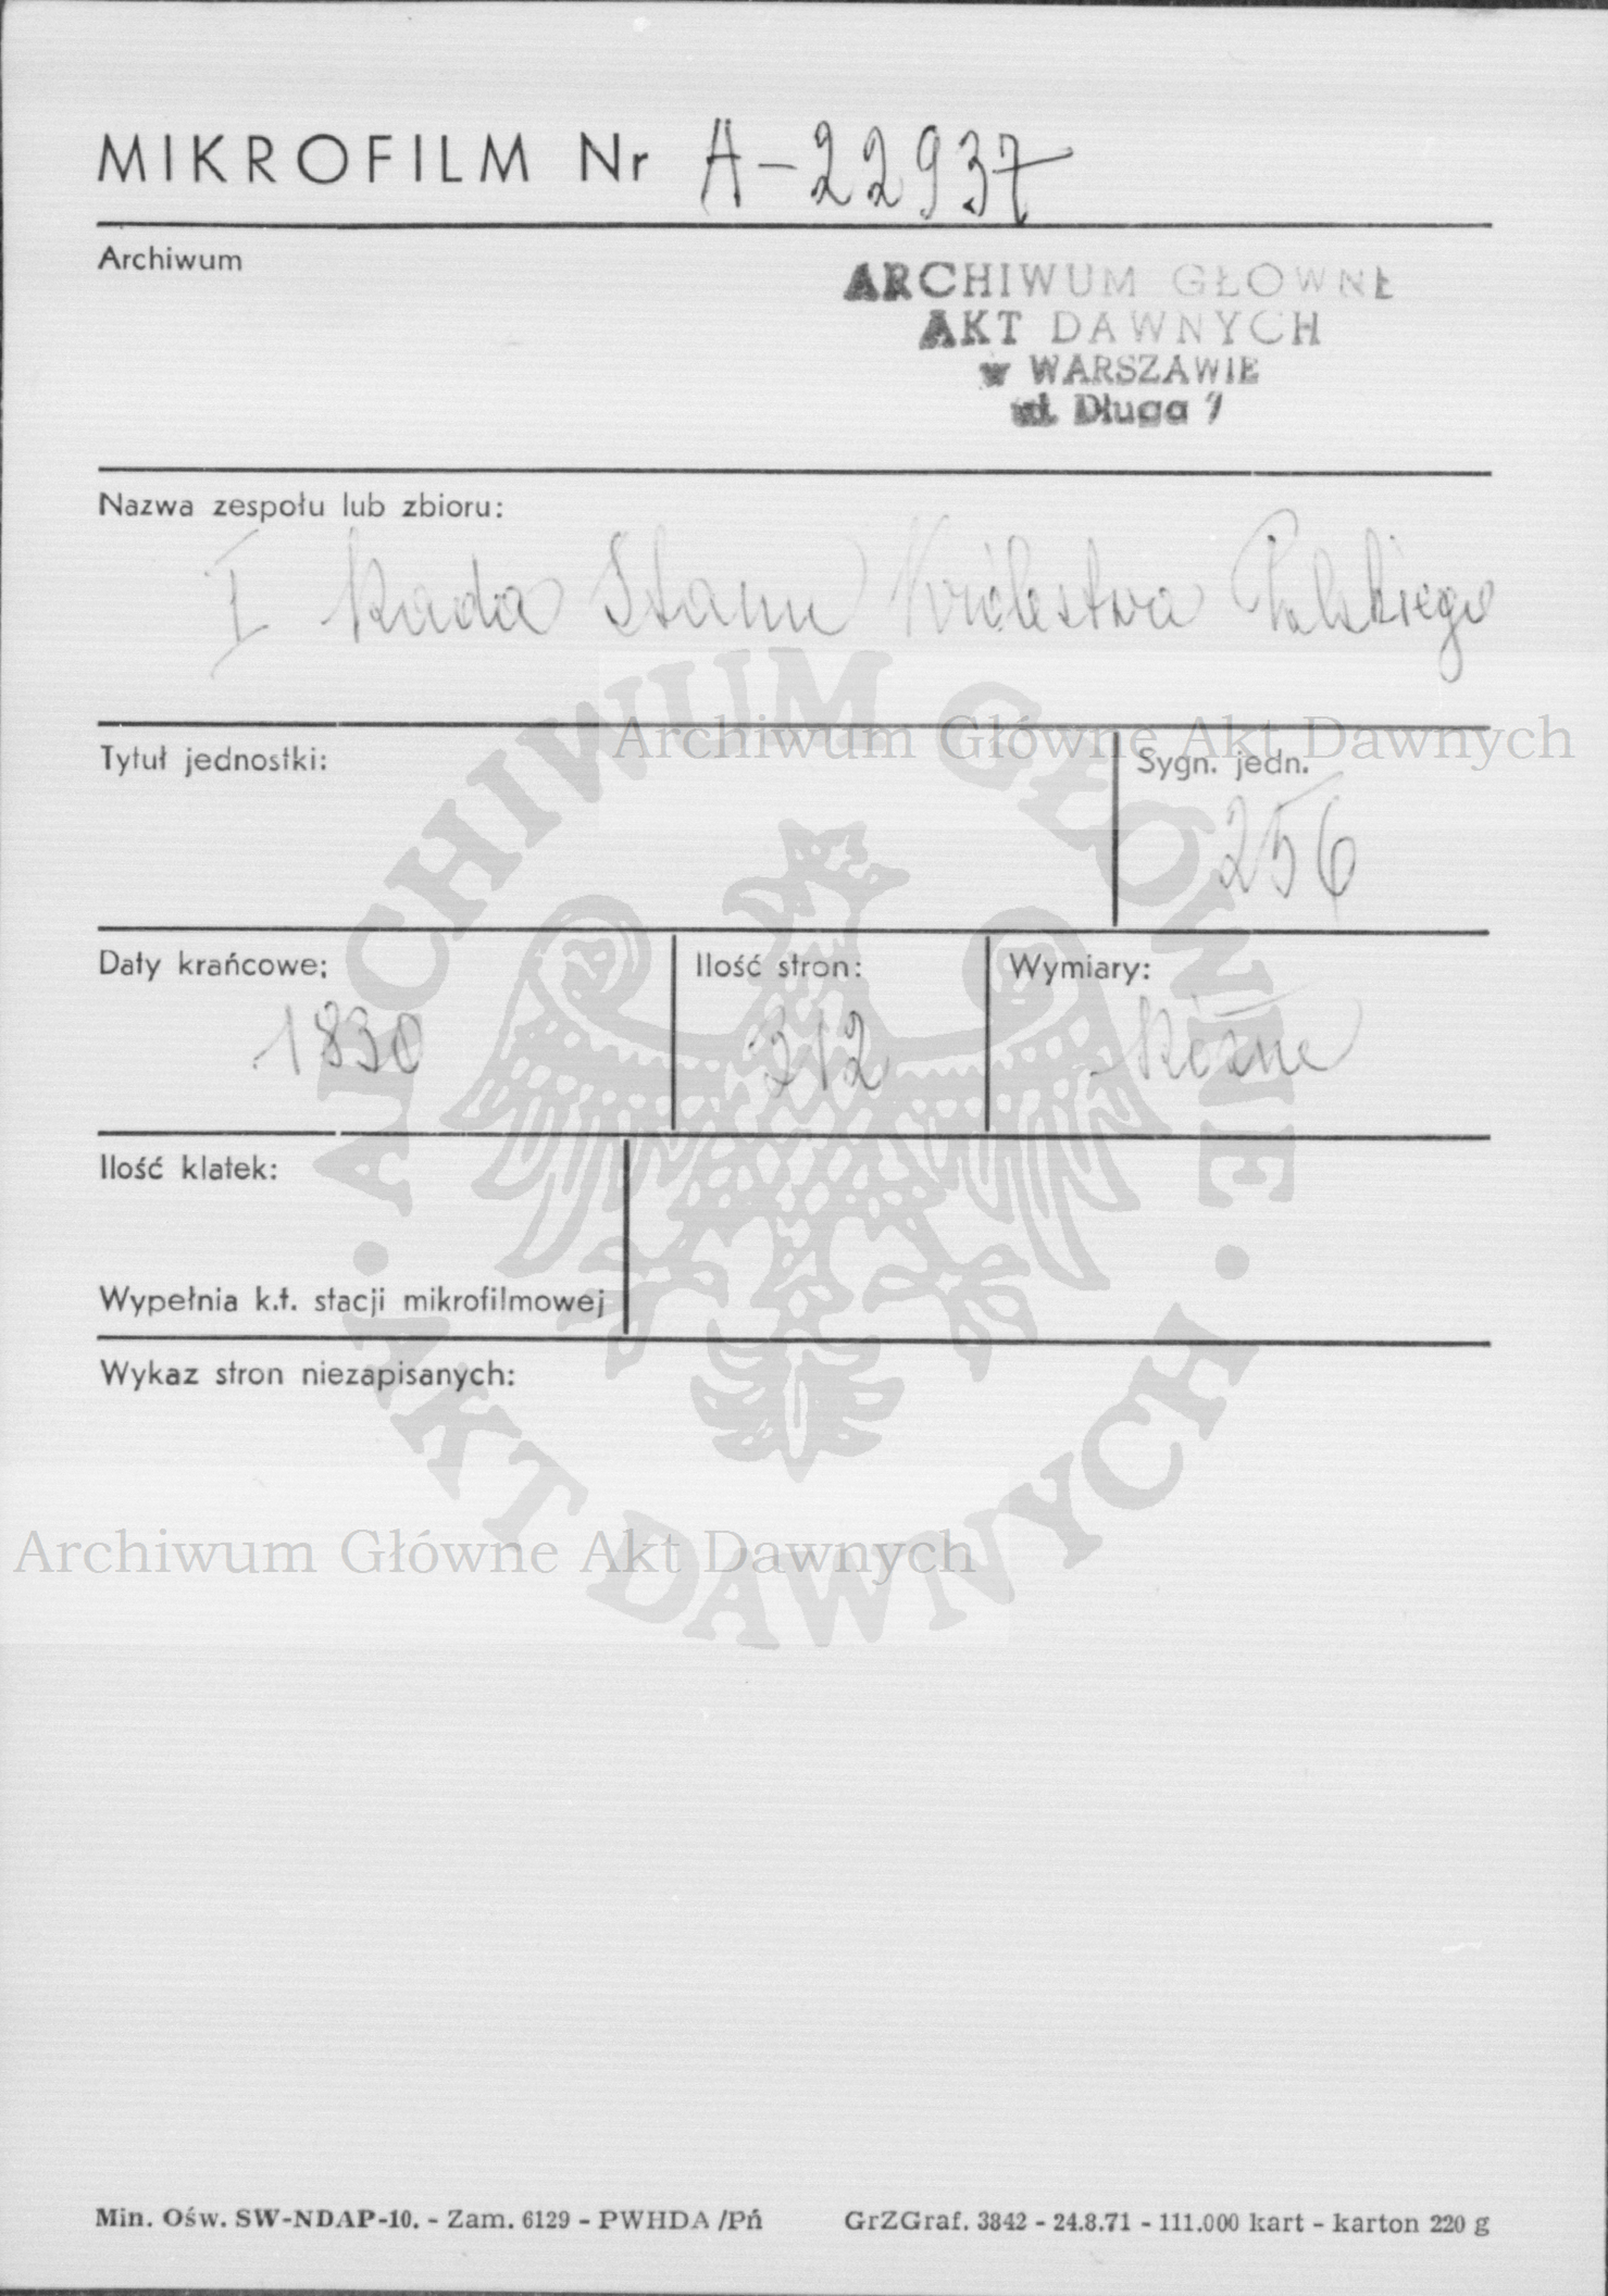 MIKROFILM Nr A-22937
Archiwum
ARCHIWUM GŁOWNE
AKT DAWNYCH
w WARSZAWIE
ul. Długa 7
Nazwa zespołu lub zbioru:
I Rada Stanu Królestwa Polskiego
Archiwum Główne Akt Dawnych
Tytuł jednostki:
Sygn. jedn.
256
Daty krańcowe:
1830
Ilość stron:
312
Wymiary:
Różne
Ilość klatek:
Wypełnia k.t. stacji mikrofilmowej
Wykaz stron niezapisanych:
ARCHIWUM GŁÓWNE
AKT DAWNYCH
Archiwum Główne Akt Dawnych
Min. Ośw. SW-NDAP-10. - Zam. 6129 - PWHDA /Pń
GrZGraf. 3842 - 24.8.71 - 111.000 kart - karton 220 g